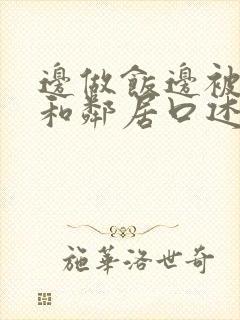 邊做飯邊被
和鄰居口述
施華洛世奇